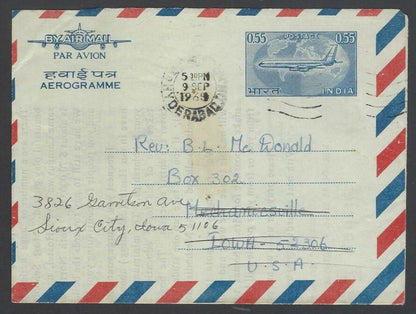 BY AIR MAIL
PAR AVION
हवाई पत्र
AEROGRAMME
5 30PM
9 SEP
1969
DERABAD
0.55 POSTAGE 0.55
भारत INDIA
Rev: B. L. Mc Donald
Box 302
Mechanicsville
Iowa - 52306
U.S.A.
3826 Garretson Ave
Sioux City, Iowa 51106